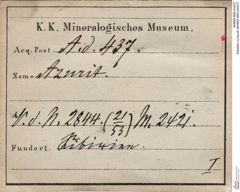 K. K. Mineralogisches Museum.
Acq. Post. A. d. 437.
Name Azurit.
V. d. N. 2844. (21/53) M. 2421.
Fundort. Sibirien.
I